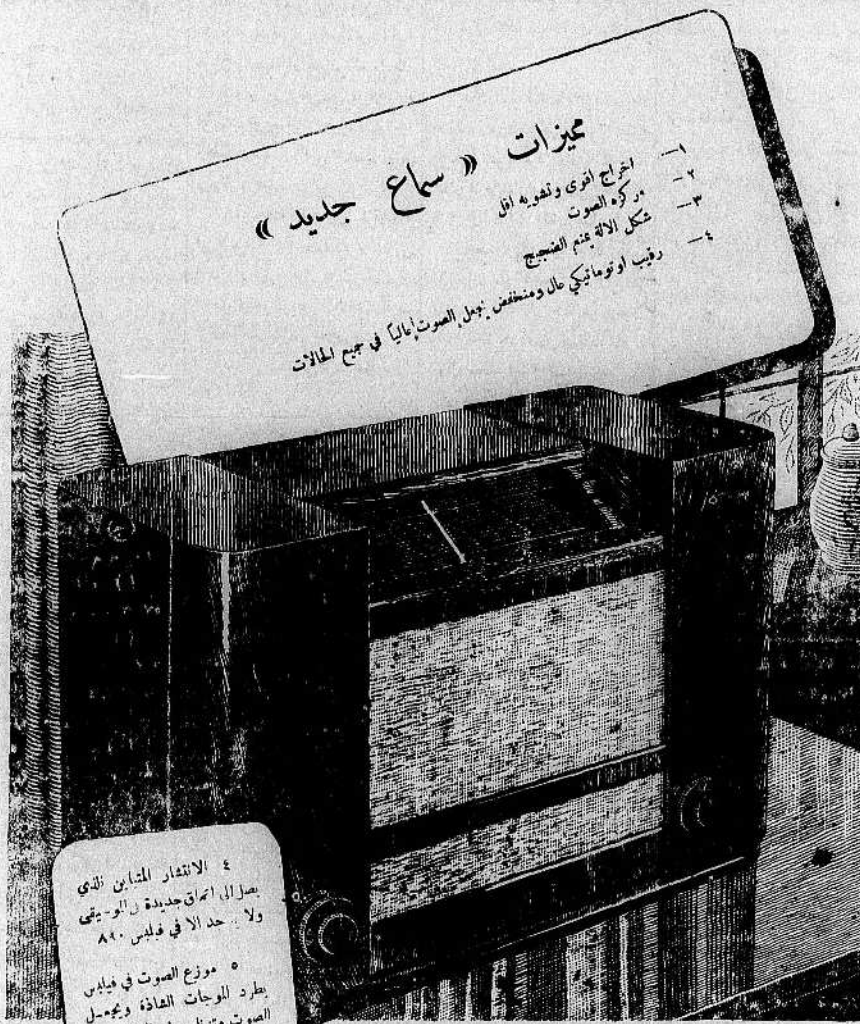 مميزات « سماع جديد »
١— اخراج اقوى وتشويه اقل
٢— مركزه الصوت
٣— شكل الالة يمنع الضجيج
٤— رقيب اوتوماتيكي عال ومنخفض يجعل الصوت عالياً في جميع الحالات
٤ الانتشار المتباين الذي
يصل الى اعماق جديدة
ولا حد الا في فيلبس ٨٩٠
٥ موزع الصوت في فيلبس
يطرد الموجات الشاذة ويجعل
الصوت